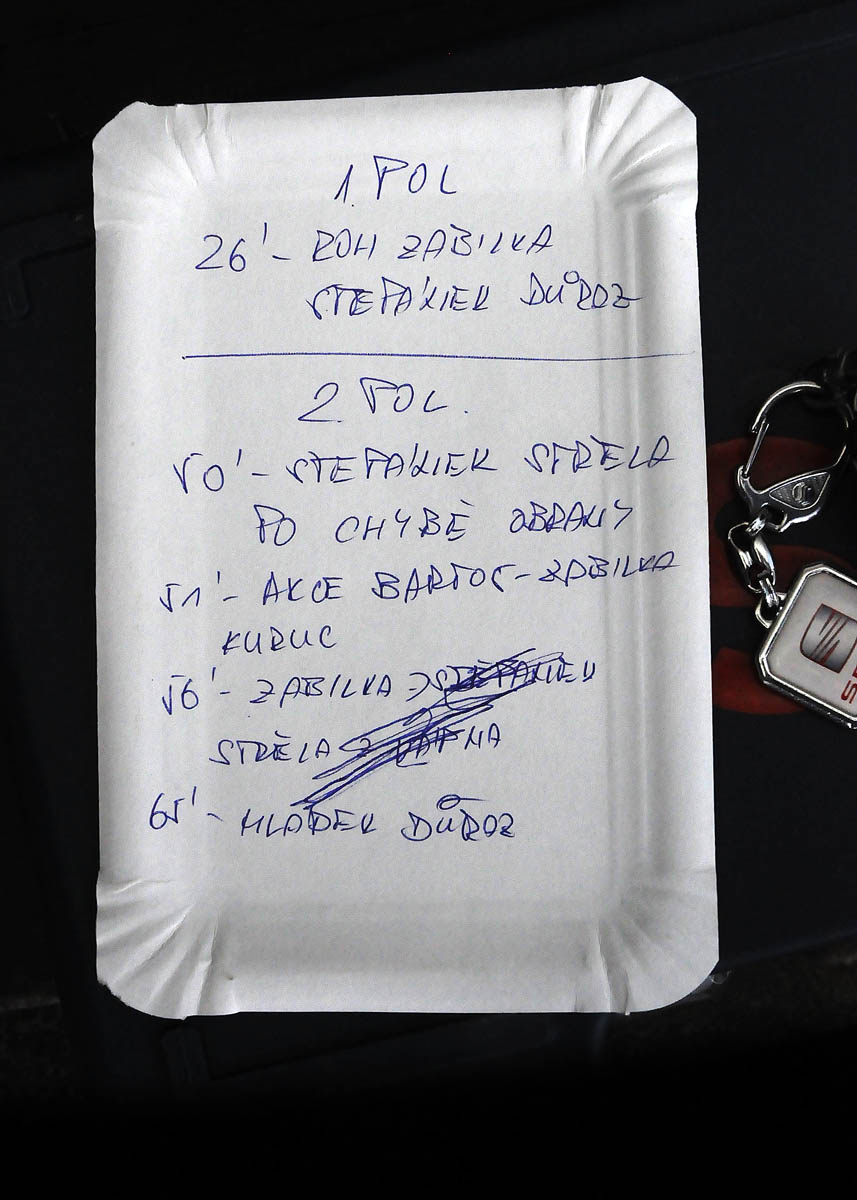 1. POL
26' - ROH ZABILKA
ŠTEFÁNIEK DŮRAZ
2. POL.
50' - STEFÁNIEK STRELA
PO CHYBĚ OBRANY
51' - AKCE BARTOŠ - ZABILKA
KURUC
56' - ZABILKA
STRĚLA
65' - MLÁDEK DŮRAZ